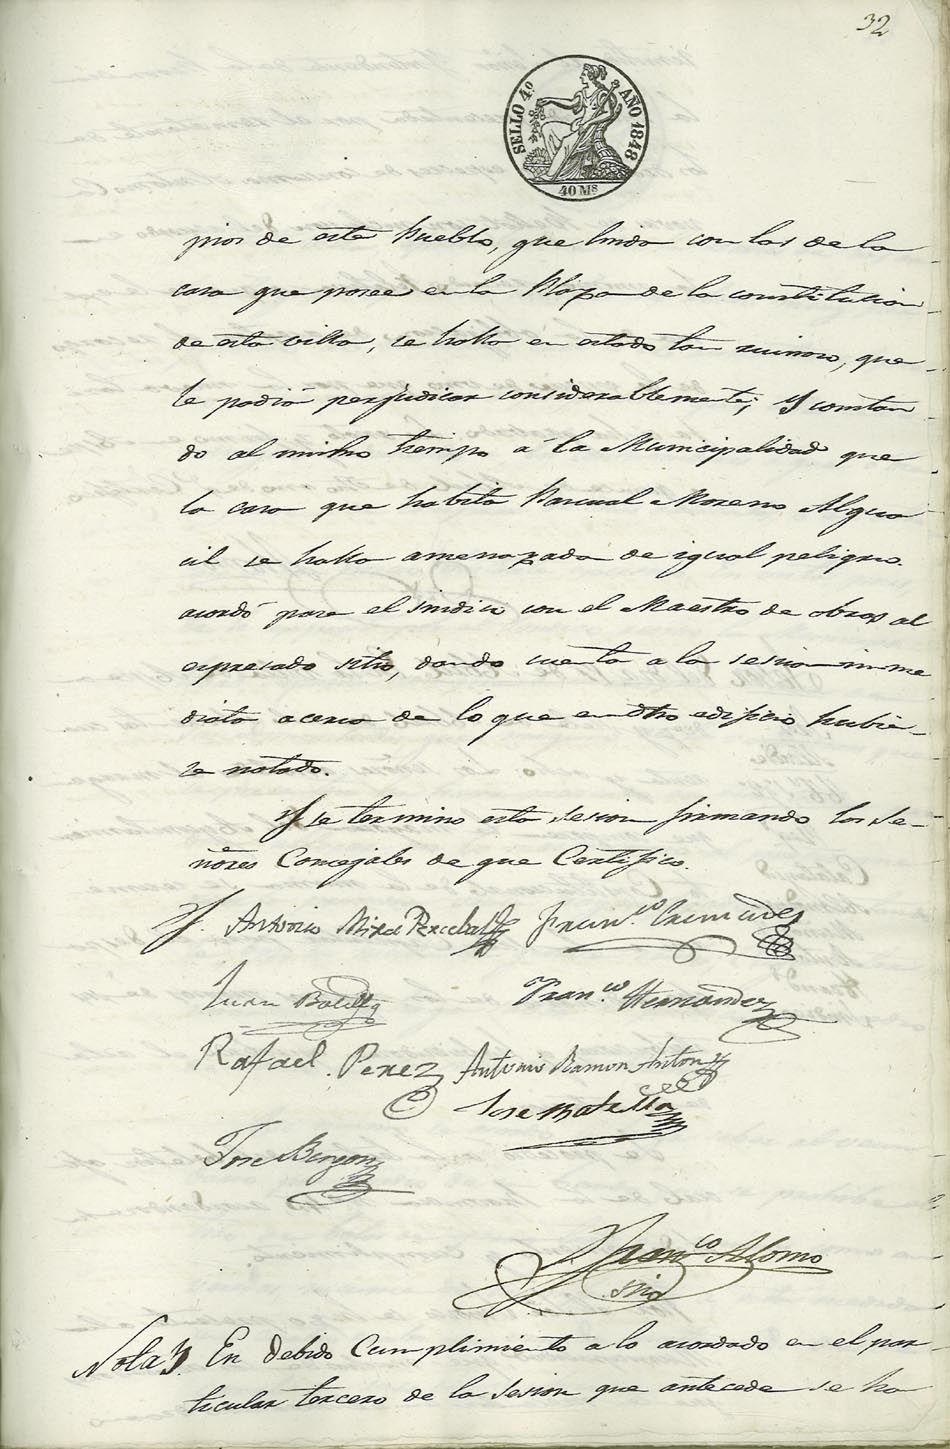 32
SELLO 4º AÑO 1848
40 Mˢ
pios de este Pueblo, que linda con las de la
casa que posee en la Plaza de la constitucion
de esta villa, se halla en estado tan ruinoso, que
le podrá perjudicar considerablemente; y constan
do al mismo tiempo á la Municipalidad que
la casa que habita Pascual Moreno Algua
cil se halla amenazada de igual peligro.
acordó pase el sindico con el Maestro de obras al
espresado sitio, dando cuenta a la sesion inme
diata acerca de lo que en dho edificio hubie-
se notado.
Y se termino esta sesion firmando los Se-
ñores Concejales de que Certifico.
J. Antonio Mira Perceval Franᶜᵒ
Juan Franᶜᵒ Hernandez
Rafael Perez Antonio Ramon Anton
Jose Botella
Jose
Franᶜᵒ Alonso
Srio
Nota En debido Cumplimiento a lo acordado en el par-
ticular tercero de la Sesion que antecede se ha